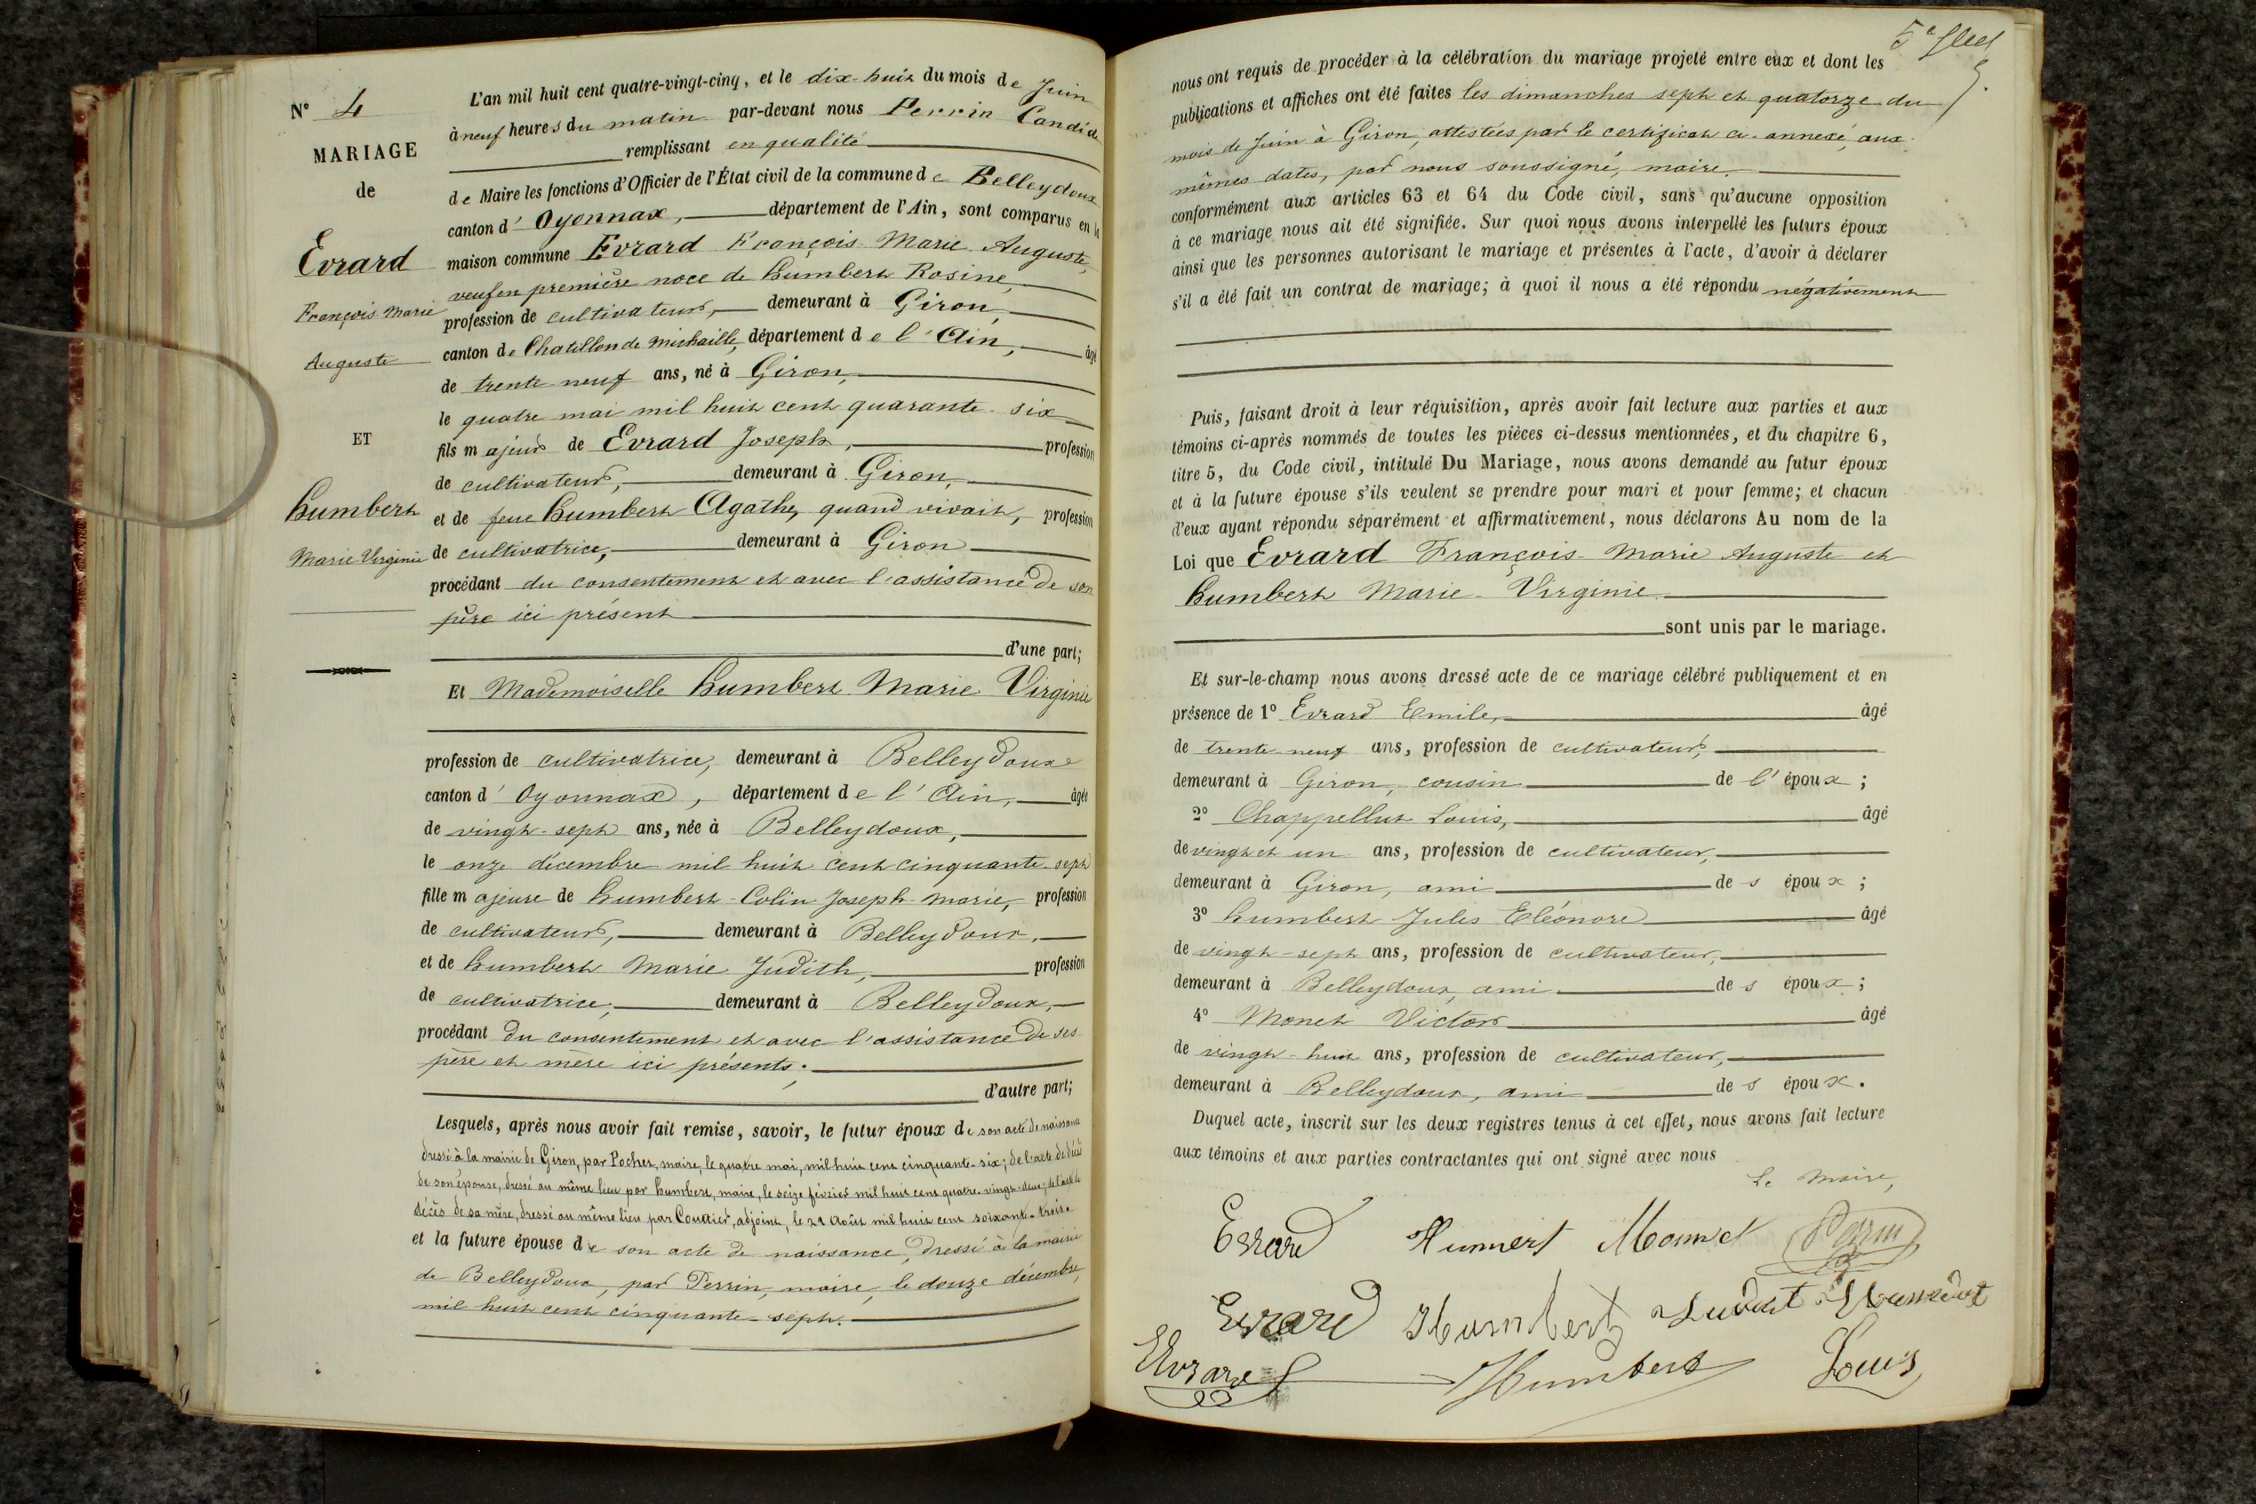 N° 4
MARIAGE
de
Evrard
François Marie
Auguste
ET
humbert
Marie Virginie
L'an mil huit cent quatre-vingt-cinq, et le dix-huit du mois de Juin
à neuf heures du matin par-devant nous Perrin Candide
remplissant en qualité
de Maire les fonctions d'Officier de l'État civil de la commune de Belleydoux
canton d' Oyonnax, département de l'Ain, sont comparus en la
maison commune Evrard François Marie Auguste,
veuf en première noce de humbert Rosine,
profession de cultivateur, demeurant à Giron,
canton de Chatillon de Michaille, département de l'Ain, âgé
de trente neuf ans, né à Giron,
le quatre mai mil huit cent quarante-six
fils majeur de Evrard Joseph, profession
de cultivateur, demeurant à Giron,
et de feue humbert Agathe, quand vivait, profession
de cultivatrice, demeurant à Giron
procédant du consentement et avec l'assistance de son
père ici présent
d'une part;
Et Mademoiselle humbert Marie Virginie
profession de cultivatrice, demeurant à Belleydoux
canton d' Oyonnax, département de l'Ain, âgée
de vingt-sept ans, née à Belleydoux,
le onze décembre mil huit cent cinquante-sept
fille majeure de humbert-Colin Joseph-Marie, profession
de cultivateur, demeurant à Belleydoux,
et de humbert Marie Judith, profession
de cultivatrice, demeurant à Belleydoux,
procédant du consentement et avec l'assistance de ses
père et mère ici présents;
d'autre part;
Lesquels, après nous avoir fait remise, savoir, le futur époux de son acte de naissance
dressé à la mairie de Giron, par Pochet, maire, le quatre mai, mil huit cent cinquante-six; de l'acte de décès
de son épouse, dressé au même lieu par humbert, maire, le seize février mil huit cent quatre-vingt-deux; de l'acte de
décès de sa mère, dressé au même lieu par Couttier, adjoint, le 21 Août mil huit cent soixante-trois.
et la future épouse de son acte de naissance, dressé à la mairie
de Belleydoux, par Perrin, maire, le douze décembre,
mil huit cent cinquante-sept.
nous ont requis de procéder à la célébration du mariage projeté entre eux et dont les
publications et affiches ont été faites les dimanches sept et quatorze du
mois de Juin à Giron, attestées par le certificat ci-annexé, aux
mêmes dates, par nous soussigné, maire.
conformément aux articles 63 et 64 du Code civil, sans qu'aucune opposition
à ce mariage nous ait été signifiée. Sur quoi nous avons interpellé les futurs époux
ainsi que les personnes autorisant le mariage et présentes à l'acte, d'avoir à déclarer
s'il a été fait un contrat de mariage; à quoi il nous a été répondu négativement
Puis, faisant droit à leur réquisition, après avoir fait lecture aux parties et aux
témoins ci-après nommés de toutes les pièces ci-dessus mentionnées, et du chapitre 6,
titre 5, du Code civil, intitulé Du Mariage, nous avons demandé au futur époux
et à la future épouse s'ils veulent se prendre pour mari et pour femme; et chacun
d'eux ayant répondu séparément et affirmativement, nous déclarons Au nom de la
Loi que Evrard François-Marie Auguste et
humbert Marie-Virginie
sont unis par le mariage.
Et sur-le-champ nous avons dressé acte de ce mariage célébré publiquement et en
présence de 1° Evrard Emile, âgé
de trente-neuf ans, profession de cultivateur,
demeurant à Giron, cousin de l'époux;
2° Chappellut Louis, âgé
de vingt et un ans, profession de cultivateur,
demeurant à Giron, ami des époux;
3° humbert Jules Eléonore âgé
de vingt-sept ans, profession de cultivateur,
demeurant à Belleydoux, ami des époux;
4° Monet Victor âgé
de vingt-huit ans, profession de cultivateur,
demeurant à Belleydoux, ami des époux.
Duquel acte, inscrit sur les deux registres tenus à cet effet, nous avons fait lecture
aux témoins et aux parties contractantes qui ont signé avec nous
Le Maire,
Evrard Humbert Monnet Perrin
Evrard Humbert
Evrard Humbert Louis